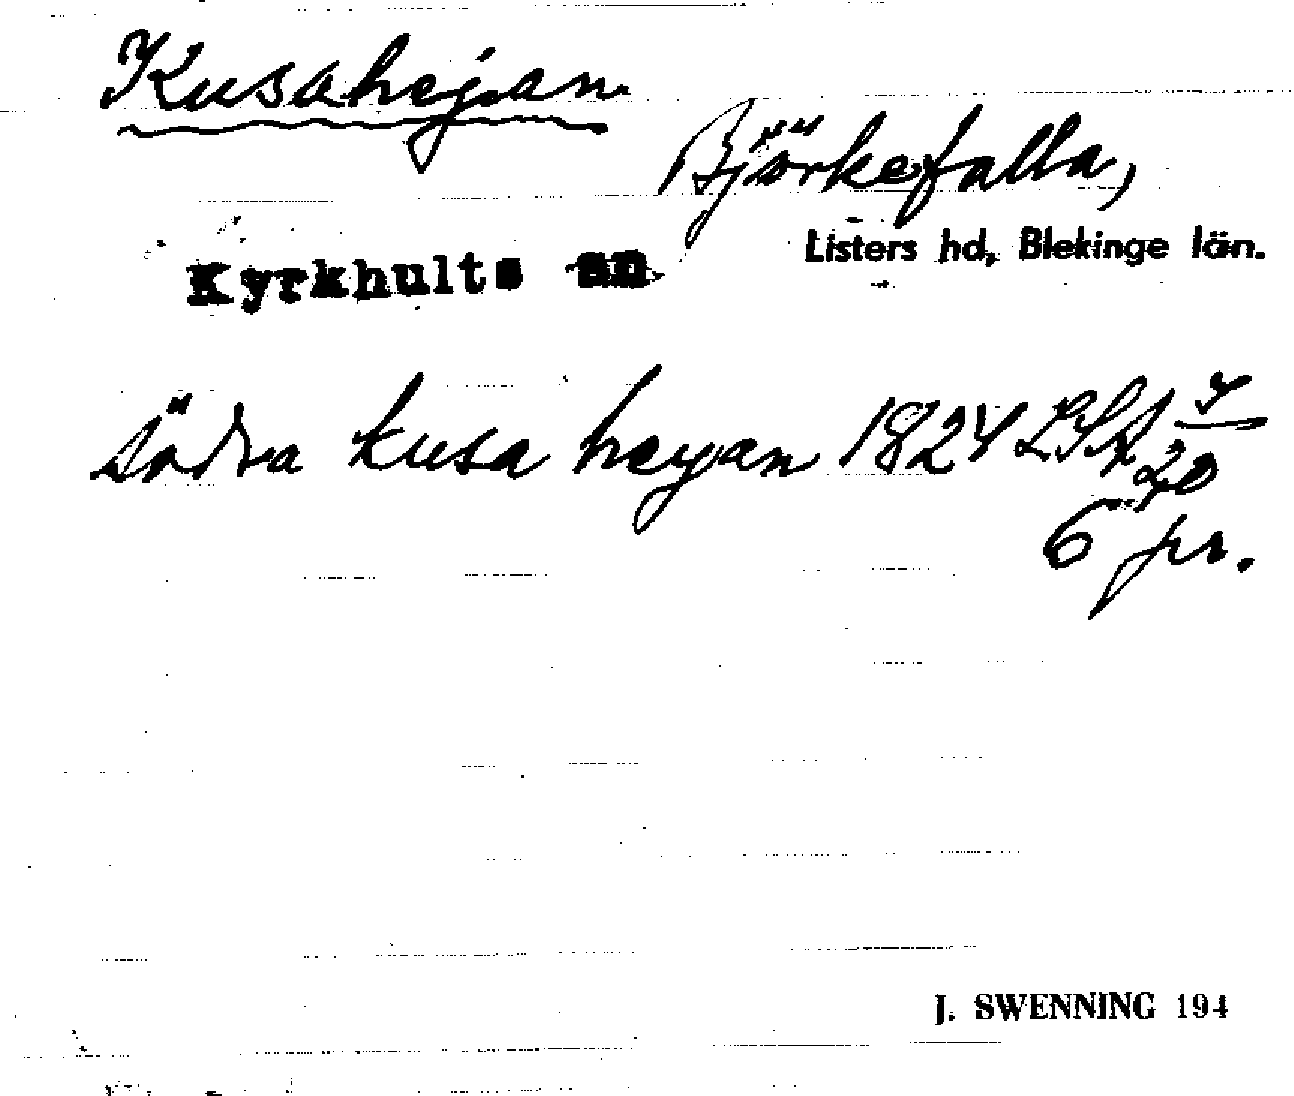 Kusahejan
Björkefalla,
Listers hd, Blekinge län.
Kyrkhults sn
södra kusa heyan 1824 LSA
20
6 pr.
J. SWENNING 194